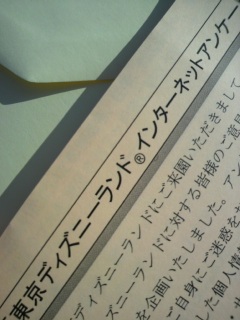 東京ディズニーランド®インターネットアンケー
ディズニーランドにご来園いただきまして
ィズニーランドに対する皆様のご意見
を企画いたしました。アン
ご自身にご迷惑をお
した個人情